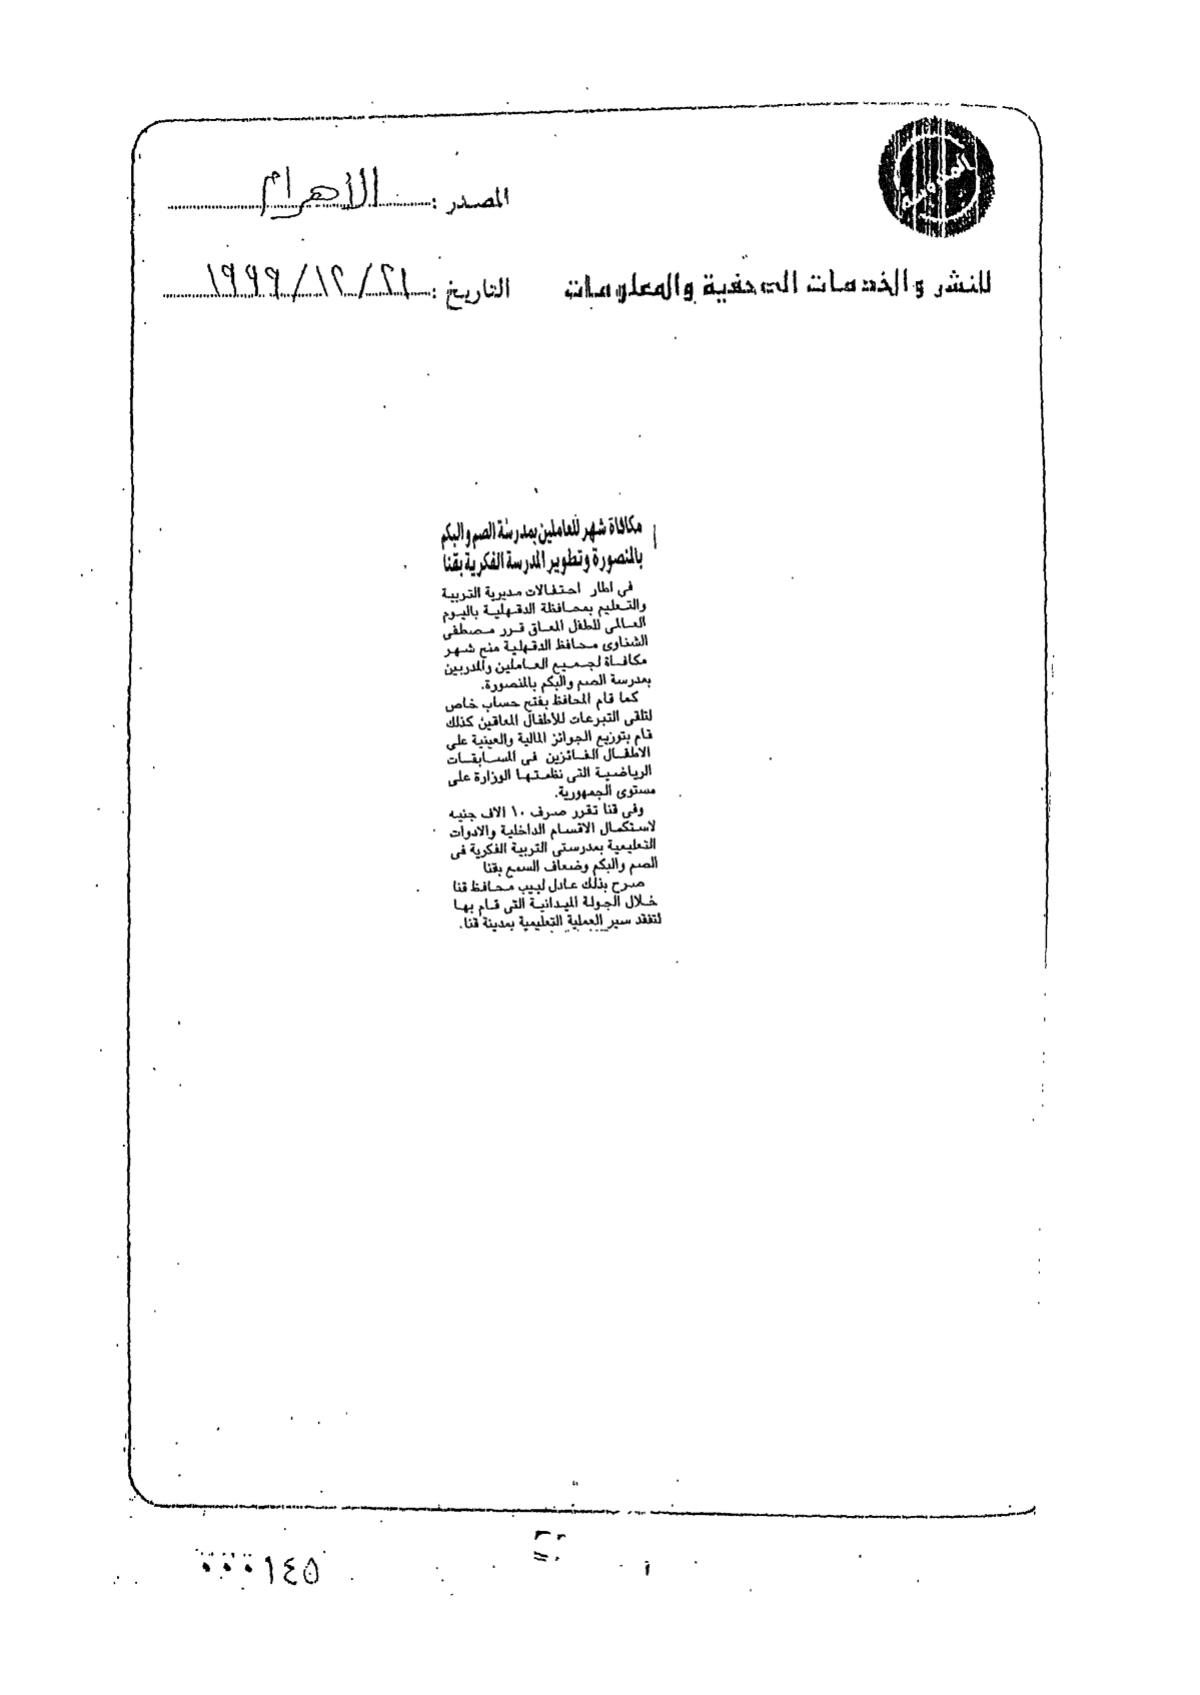 المصدر : الأهرام
للنشر والخدمات الصحفية والمعلومات
التاريخ : ٢١/١٢/١٩٩٩
مكافاة شهر للعاملين بمدرسة الصم والبكم
بالمنصورة وتطوير المدرسة الفكرية بقنا
فى اطار احتفالات مديرية التربية
والتعليم بمحافظة الدقهلية باليوم
العالمى للطفل المعاق قرر مصطفى
الشناوى محافظ الدقهلية منح شهر
مكافاة لجميع العاملين والمدربين
بمدرسة الصم والبكم بالمنصورة.
كما قام المحافظ بفتح حساب خاص
لتلقى التبرعات للأطفال المعاقين كذلك
قام بتوزيع الجوائز المالية والعينية على
الاطفال الفائزين فى المسابقات
الرياضية التى نظمتها الوزارة على
مستوى الجمهورية.
وفى قنا تقرر صرف ١٠ الاف جنيه
لاستكمال الاقسام الداخلية والادوات
التعليمية بمدرستى التربية الفكرية فى
الصم والبكم وضعاف السمع بقنا
صرح بذلك عادل لبيب محافظ قنا
خلال الجولة الميدانية التى قام بها
لتفقد سير العملية التعليمية بمدينة قنا.
٠٠٠١٤٥